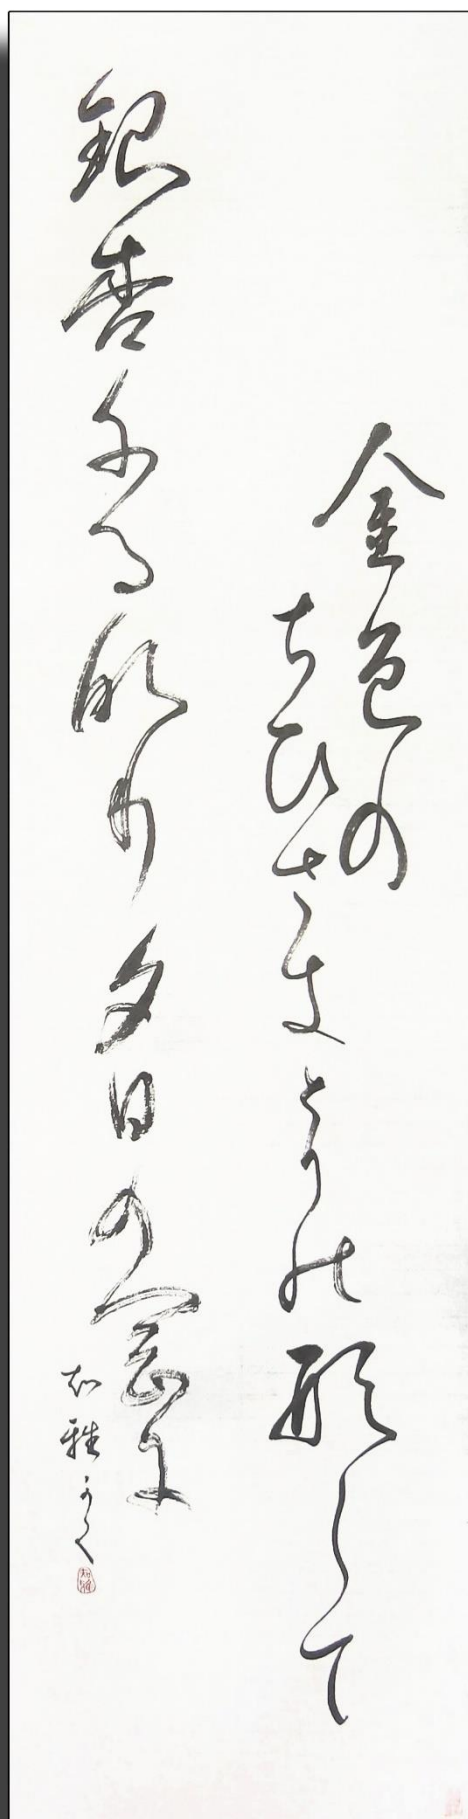 金色の
ちひさきとりの形して
銀杏ちるなり夕日の岡に
知雅かく